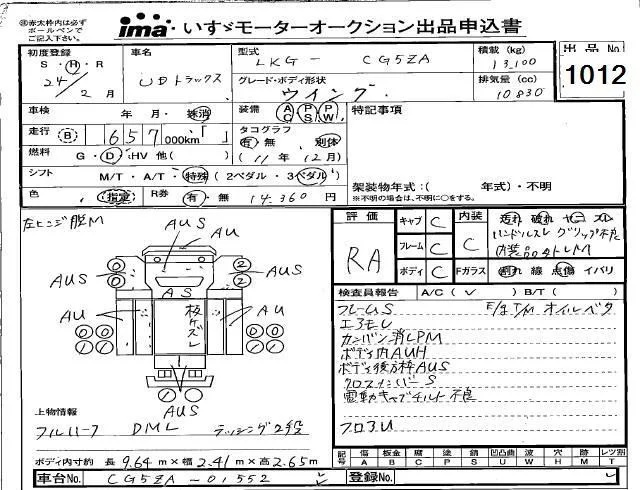 ※赤太枠内は必ず
ボールペンで
ご記入下さい。
ima いすゞモーターオークション出品申込書
出品No.
1012
初度登録
S・H・R
24年2月
車名
UDトラックス
型式
LKG- CG5ZA
積載 (kg)
13,100
グレード・ボディ形状
ウイング
排気量 (cc)
10830
車検 年 月・抹消
装備 AC PS PW
特記事項
走行 (B) 657 000km「 」
タコグラフ
有・無 別体
(11年12月)
燃料 G・D・HV 他( )
シフト M/T・A/T・特殊 (2ペダル・3ペダル)
架装物年式:( 年式)・不明
※不明の場合は、不明に○をする。
色 (指定) R券 有・無 14,360円
左ヒンジ脱M
AUS
AU
AUS
AUS
AS
AU
板ケズレ
AU
AUS
評価
RA
キャブ C
フレーム C
ボディ C
内装 C
汚れ 破れ ヤニ スレ
ハンドルスレ グリップ不良
内装品外レM
Fガラス 割れ 線 点傷 イバリ
検査員報告 A/C ( V ) B/T ( )
フレームS E/g T/M オイルベタ
エアモU
カンバン消しPM
ボディ内AUH
ボディ後方枠AUS
クロスメンバーS
電動キャブチルト不良
フロアU
上物情報
フルハーフ DML ラッシング2段
ボディ内寸約 長 9.64m × 幅 2.41m × 高 2.65m
記号 傷A 板B 腐C 塗P 錆S 凹凸曲U 波W 穴H 跡M レツ割T
車台No. CG5ZA-01552
登録No.